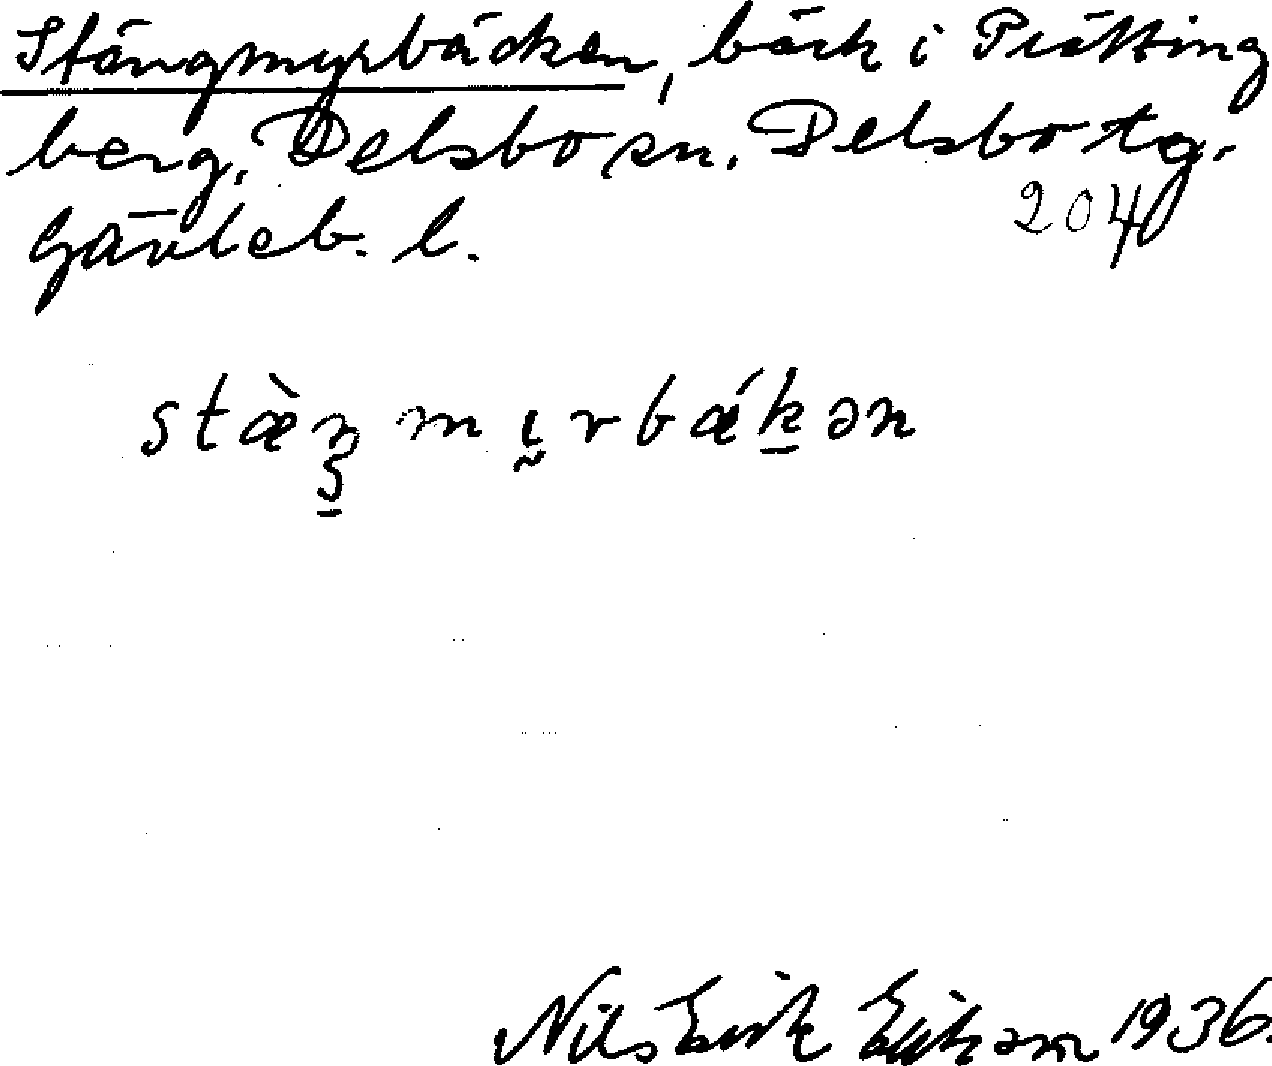 Stängmyrbäcken, bäck i Prätting
berg, Delsbo sn. Delsbo tg.
Gävleb. l.
204
stæ̀ŋ mɩ̰rbǽ̱ḵən
Nils Erik Erikson 1936.